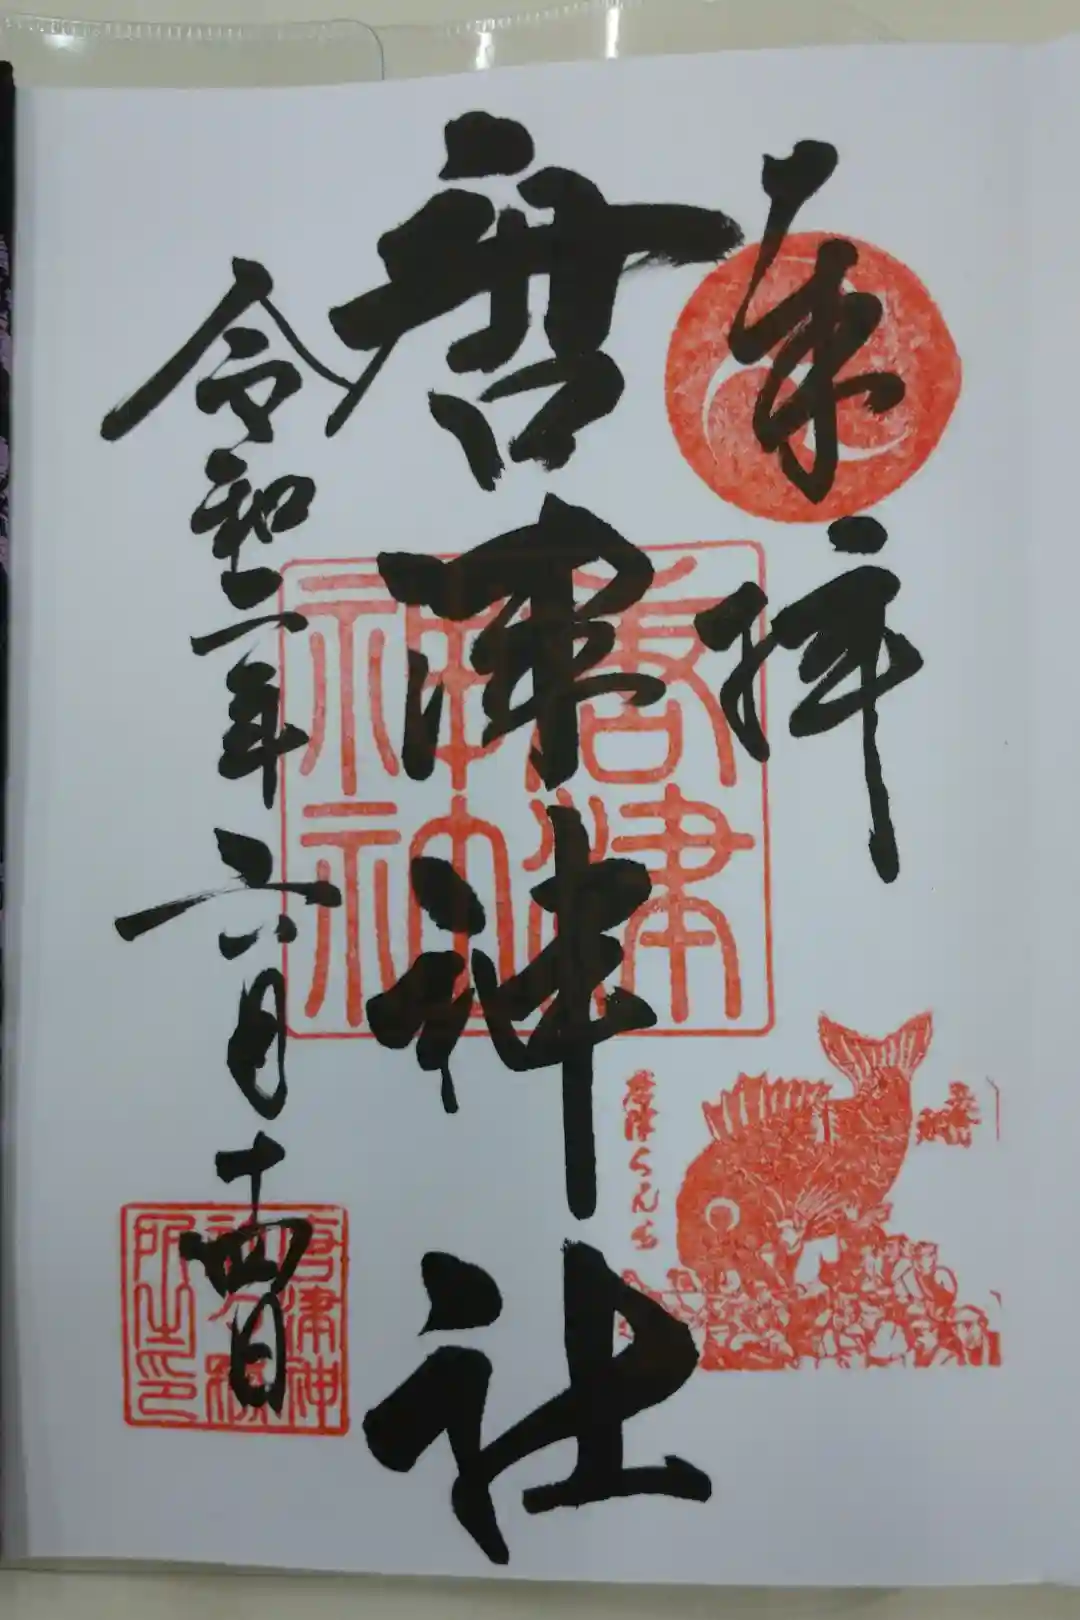 奉拝
唐津神社
令和二年六月十四日
唐津
神社
唐津くんち
唐津神
社々務
所之印